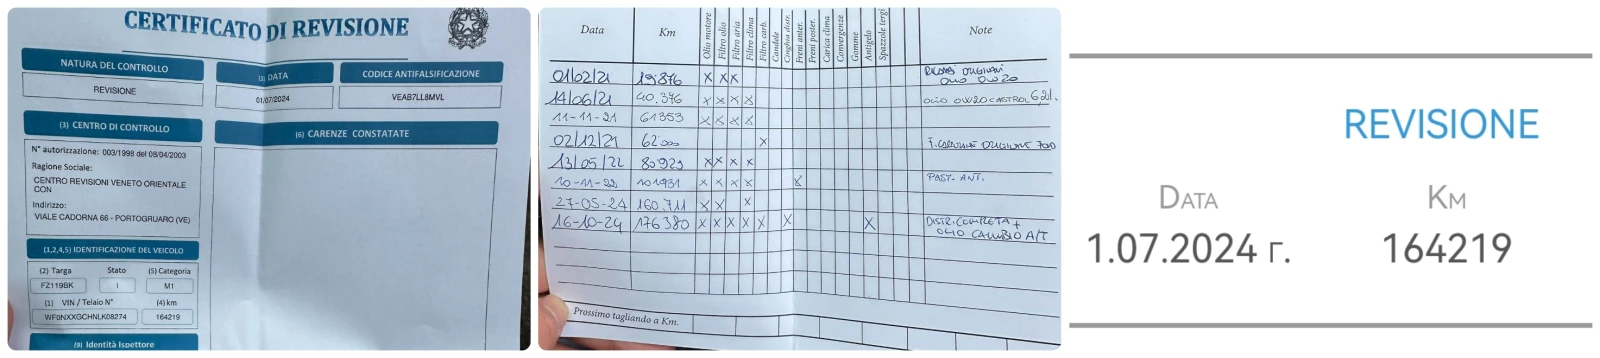 CERTIFICATO DI REVISIONE
NATURA DEL CONTROLLO
REVISIONE
(3) DATA
01/07/2024
CODICE ANTIFALSIFICAZIONE
VEAB7LL8MVL
(3) CENTRO DI CONTROLLO
N° autorizzazione: 003/1998 del 08/04/2003
Ragione Sociale:
CENTRO REVISIONI VENETO ORIENTALE
CON
Indirizzo:
VIALE CADORNA 66 - PORTOGRUARO (VE)
(6) CARENZE CONSTATATE
(1,2,4,5) IDENTIFICAZIONE DEL VEICOLO
(2) Targa Stato (5) Categoria
FZ119BK I M1
(1) VIN / Telaio N° (4) km
WF0NXXGCHNLK08274 164219
(9) Identità Ispettore
Data Km Olio motore Filtro olio Filtro aria Filtro clima Filtro carb. Candele Cinghia distr. Freni anter. Freni poster. Carica clima Convergenze Gomme Antigelo Spazzole tergi Note
01/02/21 19.876 X X X RICAMBI ORIGINALI
OLIO 0W20
14/06/21 40.376 X X X X OLIO 0W20 CASTROL 6,2l.
11-11-21 61353 X X X X
02/12/21 62.000 X
13/05/22 80929 X X X X
10-11-22 101931 X X X X X PAST. ANT.
27-05-24 160.711 X X X
16-10-24 176380 X X X X X X X DISTR. COMPLETA +
OLIO CAMBIO A/T
Prossimo tagliando a Km.
REVISIONE
DATA KM
1.07.2024 г. 164219